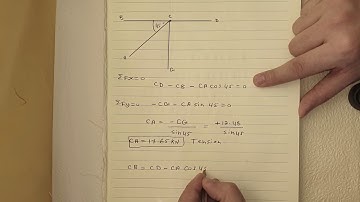 B C D
45
A
G
ΣFx=0
CD - CB - CA cos 45 = 0
ΣFy=0 - CG - CA sin 45 = 0
CA = -CG / sin 45 = +12.48 / sin 45
CA = 17.65 KN Tension
CB = CD - CA cos 45